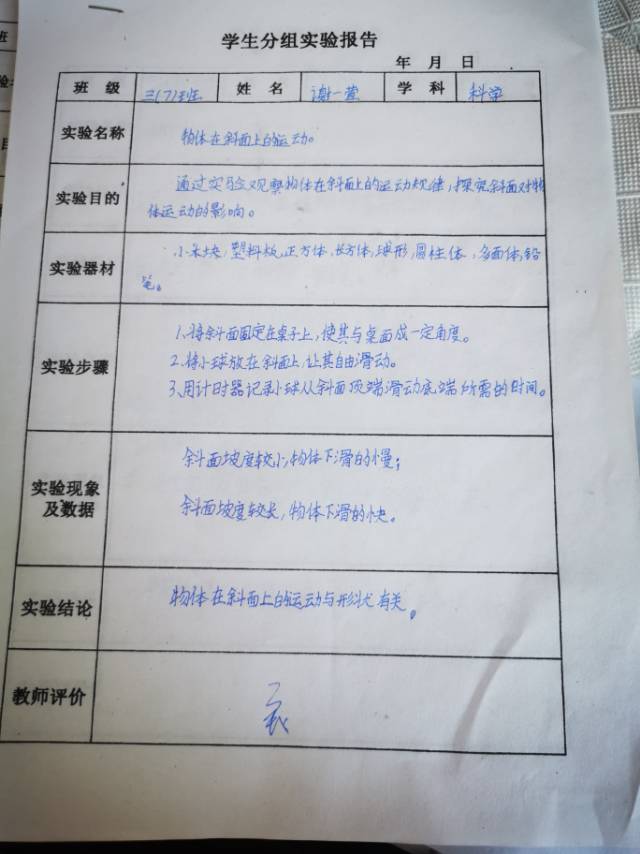 学生分组实验报告
年 月 日
班 级 三(7)班 姓 名 谢一萱 学 科 科学
实验名称 物体在斜面上的运动。
实验目的 通过实验观察物体在斜面上的运动规律,探究斜面对物
体运动的影响。
实验器材 小木块,塑料板,正方体,长方体,球形,圆柱体,多面体,铅
笔。
实验步骤 1、将斜面固定在桌子上,使其与桌面成一定角度。
2、将小球放在斜面上,让其自由滑动。
3、用计时器记录小球从斜面顶端滑动底端所需的时间。
实验现象
及数据
斜面坡度较小,物体下滑的慢;
斜面坡度较长,物体下滑的快。
实验结论 物体在斜面上的运动与形状有关。
教师评价